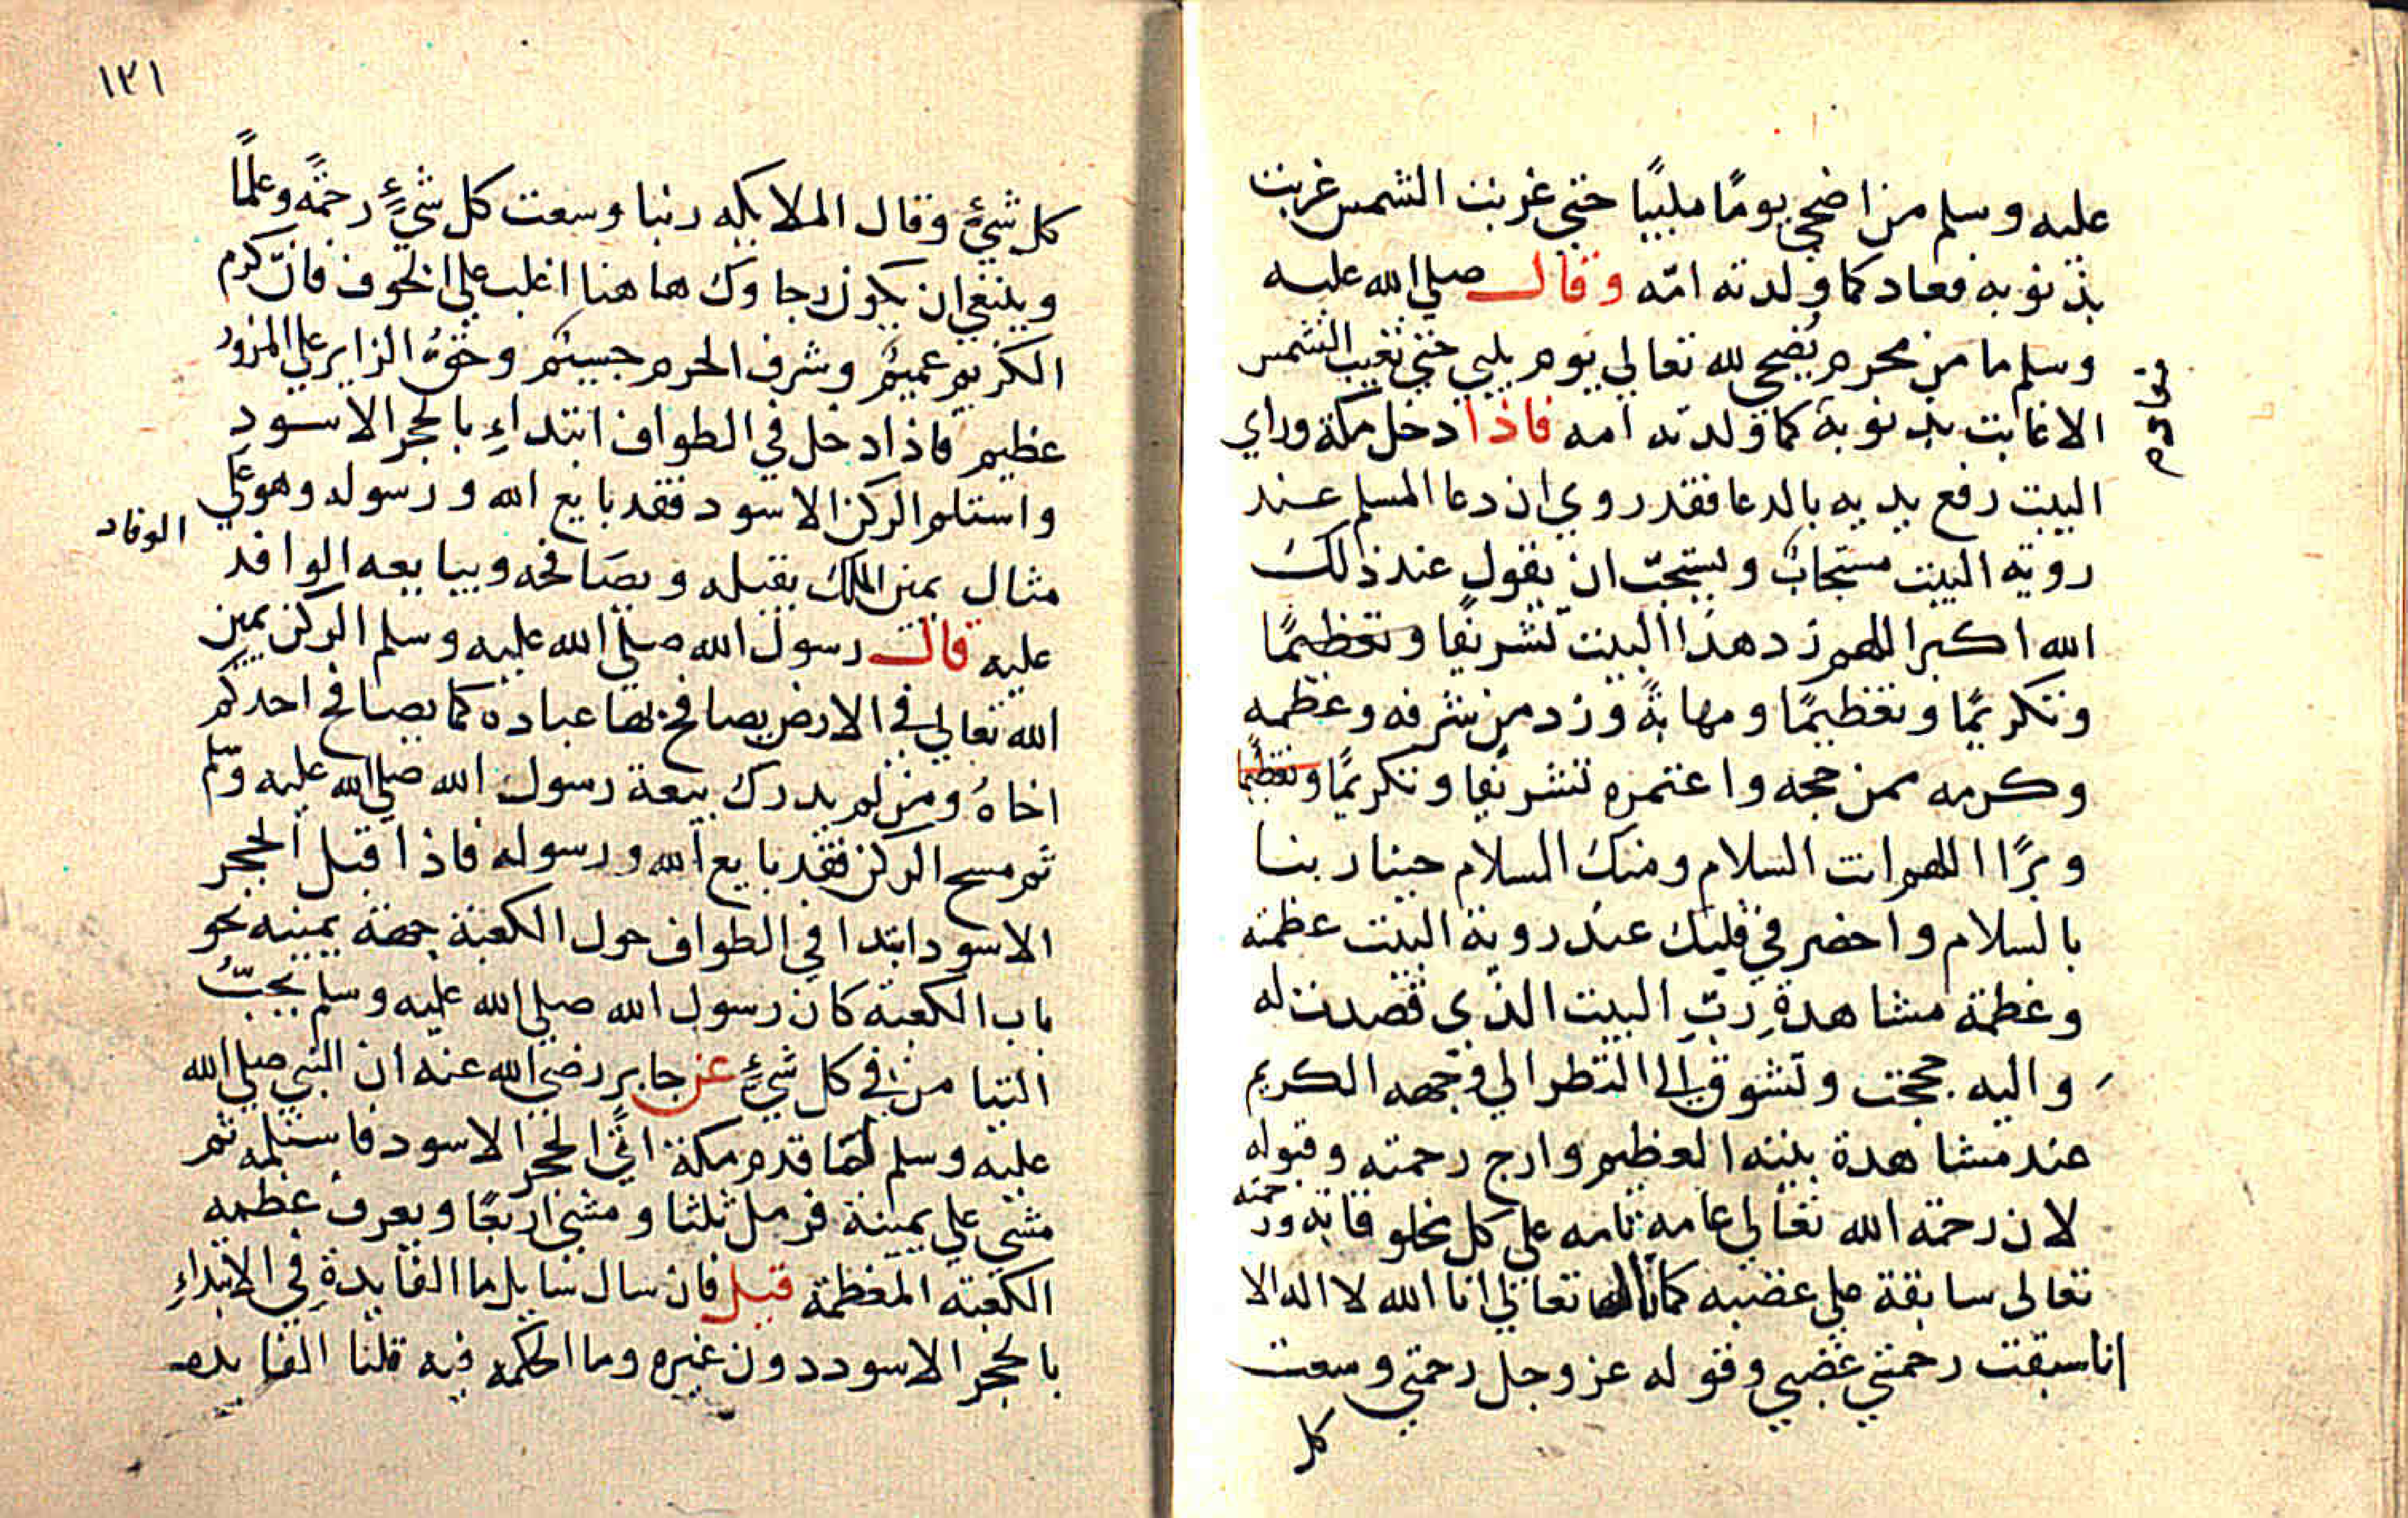 عليه وسلم من اضحى يومًا ملبيًا حتى غربت الشمس غربت
بذنوبه فعاد كما ولدته امّه وقال صلى الله عليه
وسلم ما من محرم يُضحي لله تعالى يوم يلبي حتى تغيب الشمس
الا غابت بذنوبه كما ولدته امه فاذا دخل مكة وراي
البيت رفع يديه بالدعا فقد روي ان دعا المسلم عند
روية البيت مستجابٌ ويستحبّ ان يقول عند ذلك
الله اكبر اللهم زد هذا البيت تشريفا وتعظيمًا
وتكريمًا وتعظيمًا ومهابةً وزد من شرفه وعظمه
وكرمه ممن حجه واعتمره تشريفا وتكريمًا وتعظيما
وبرًا اللهم انت السلام ومنك السلام حينا ربنا
بالسلام واحضر في قلبك عند روية البيت عظمته
وعظمة مشاهدةِ ربّ البيت الذي قصدت له
واليه حججت وتشوق الى النظر الى وجهه الكريم
عند مشاهدة بيته العظيم وارج رحمته وقبوله
لان رحمة الله تعالى عامه تامه على كل مخلوقاته ورحمته
تعالى سابقة على غضبه كما قال الله تعالى انا الله لا اله الا
انا سبقت رحمتي غضبي وقوله عز وجل رحمتي وسعت
كل
١٢١
كل شيءٍ وقال الملايكه ربنا وسعت كل شيءٍ رحمًة وعلمًا
وينبغي ان يكون رجاوك هاهنا اغلب على الخوف فانّ كرم
الكريم عميمٌ وشرف الحرم جسيمٌ وحقُ الزاير على المزور
عظيم فاذا دخل في الطواف ابتداءِ بالحجر الاسودِ
واستلم الركن الاسود فقد بايع الله ورسوله وهو على
مثال يمين الملك يقبله ويصَافحه ويبايعه الوافد
الوفاد
عليه قال رسول الله صلى الله عليه وسلم الركن يمين
الله تعالى في الارض يصافح بها عباده كما يصافح احدكم
اخاهُ ومن لم يدرك بيعة رسول الله صلى الله عليه وسلم
ثم مسح الركن فقد بايع الله ورسوله فاذا قبل الحجر
الاسود ابتدا في الطواف حول الكعبة جهة يمينه نحو
باب الكعبة كان رسول الله صلى الله عليه وسلم يحبّ
التيامن في كل شيءٍ عن جابر رضي الله عنه ان النبي صلى الله
عليه وسلم لما قدم مكة اتى الحجر الاسود فاستلمه ثم
مشي على يمينة فرمل ثلثا ومشى اربعًا ويعرف عظمه
الكعبة المعظمة قيل فان سال سايل ما الفايدةِ في الابتداءِ
بالحجر الاسود دون غيره وما الحكمه فيه قلنا الفايده